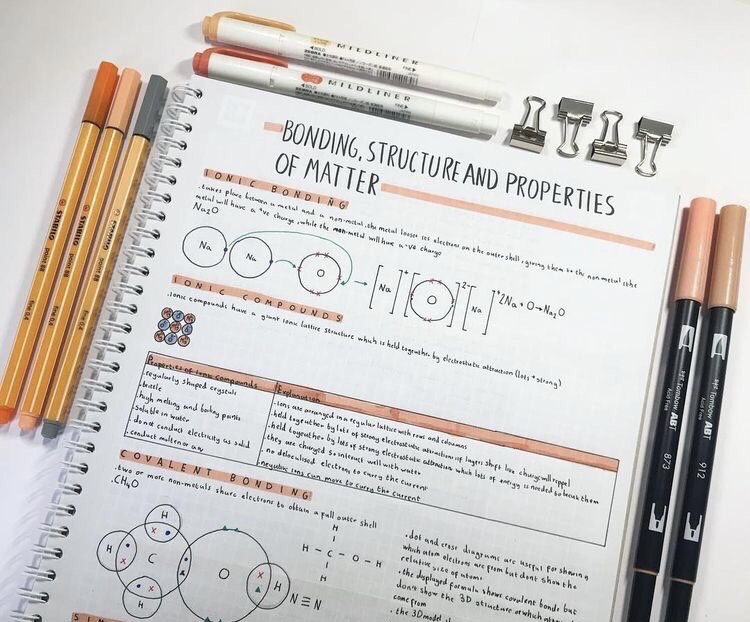 MILDLINER
MILDLINER
STABILO point 88 fine 0.4
STABILO point 88 fine 0.4
STABILO point 88 fine 0.4
BONDING, STRUCTURE AND PROPERTIES
OF MATTER
IONIC BONDING
.takes place between a metal and a non-metal. the metal looses its electrons on the outer shell, giving them to the non metal. the
metal will have a +ve charge, while the non-metal will have a -ve charge
Na2O
Na Na O [Na]+ [O]2- [Na]+ 2Na + O → Na2O
IONIC COMPOUNDS
.ionic compounds have a giant ionic lattice structure which is held togeather by electrostatic attraction (lots + strong)
Properties of ionic compounds
.regularly shaped crystals
.brittle
.high melting and boiling points
.soluble in water
.do not conduct electricity as solid
.conduct molten or aq
Explanation
.ions are arranged in a regular lattice with rows and coloumns
.held togeather by lots of strong electrostatic attractions if layers shift like charges will reppel
.held togeather by lots of strong electrostatic attraction which lots of energy is needed to break them
.they are charged so interact well with water
.no delocalised electrons to carry the current
.negative ions can move to carry the current
COVALENT BONDING
.two or more non-metals share electrons to obtain a full outer shell
.CH4O
H H H C O H
H
H - C - O - H
H
N≡N
.dot and cross diagrams are useful for showing
which atom electrons are from but dont show the
relative size of atoms
.the displayed formula shows covalent bonds but
dont show the 3D structure or which atoms
come from
.the 3D model
Tombow ABT
Acid Free
873
Tombow ABT
Acid Free
912